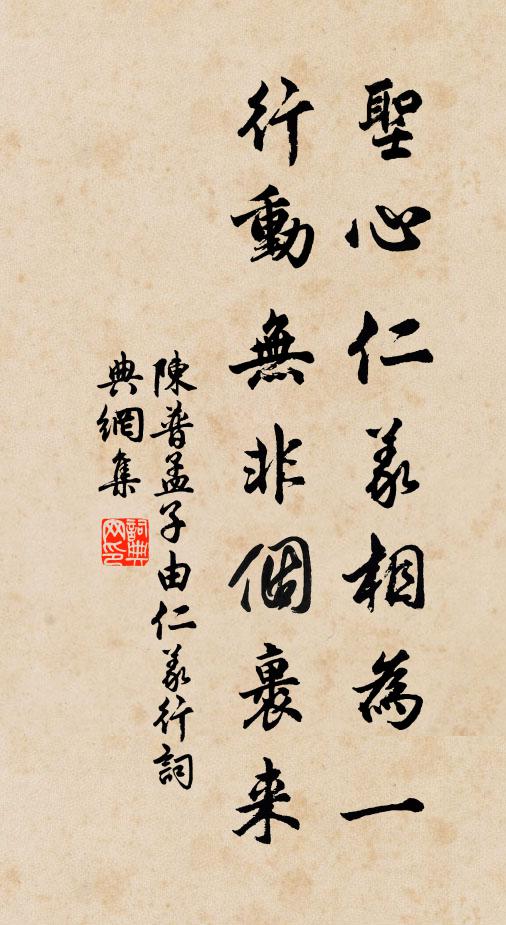 聖心仁義相為一
行動無非個裏来
陳普孟子由仁義行詞
典網集
詞典
网印